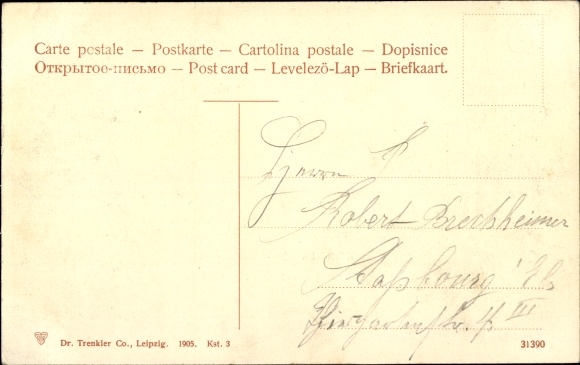 Carte postale — Postkarte — Cartolina postale — Dopisnice
Открытое-письмо — Post card — Levelező-Lap — Briefkaart.
Herrn
Robert Brechheimer
Straßbourg
III
Dr. Trenkler Co., Leipzig. 1905. Kst. 3
31390